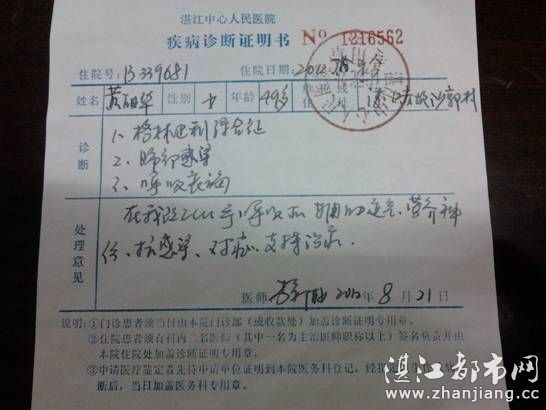 湛江中心人民医院
疾病诊断证明书 No 1216562
住院号: B339681 住院日期: 2012.
姓名 性别 年龄 49岁 单位或住址
诊断
1、格林巴利综合征
2、肺部感染
3、呼吸衰竭
处理意见
在我院ICU予呼吸机辅助通气、营养神
经、抗感染、对症、支持治疗。
医师 2012年8月21日
说明:①门诊患者须当日由本院门诊部(或收款处)加盖诊断证明专用章。
②住院患者须有科内二名医师(其中一名为主治医师职称以上)签名负责并由
本院住院处加盖诊断证明专用章。
③申请医疗鉴定者先持申请单位证明到本院医务科登记,经指定
断后,当日加盖医务科专用章。
湛江都市网
www.zhanjiang.cc